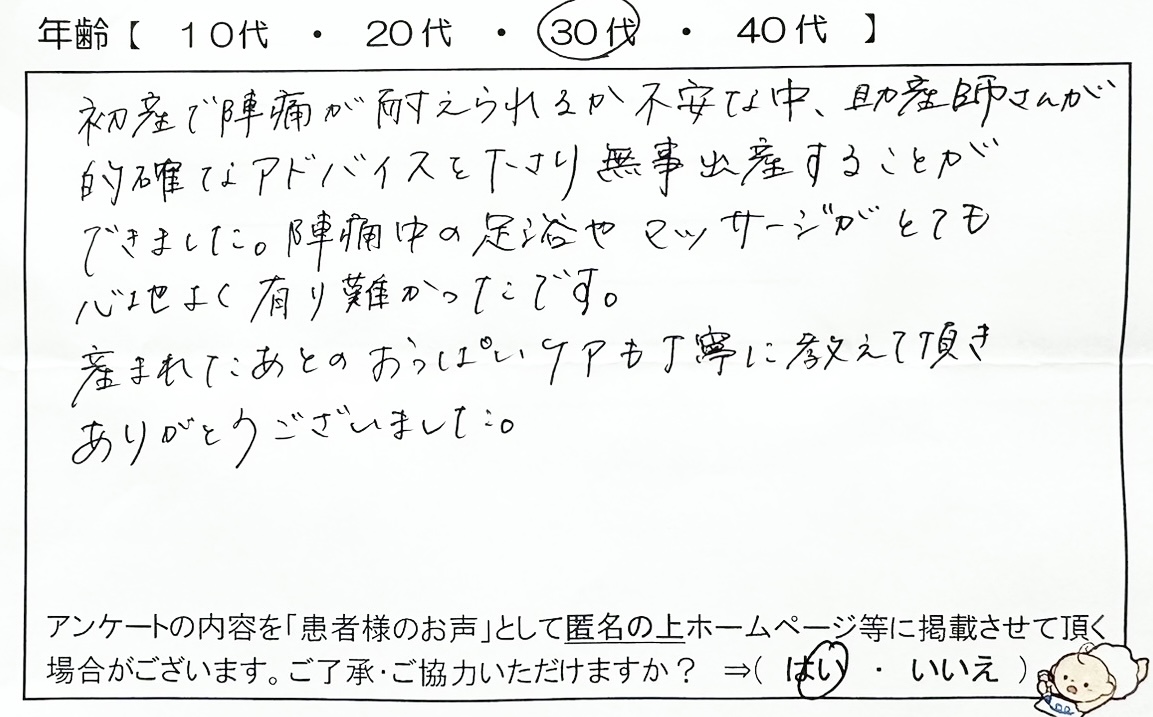 年齢【　10代　・　20代　・　30代　・　40代　】
初産で陣痛が耐えられるか不安な中、助産師さんが
的確なアドバイスを下さり無事出産することが
できました。陣痛中の足浴やマッサージがとても
心地よく有り難かったです。
産まれたあとのおっぱいケアも丁寧に教えて頂き
ありがとうございました。
アンケートの内容を「患者様のお声」として匿名の上ホームページ等に掲載させて頂く
場合がございます。ご了承・ご協力いただけますか？　⇒（　はい　・　いいえ　）